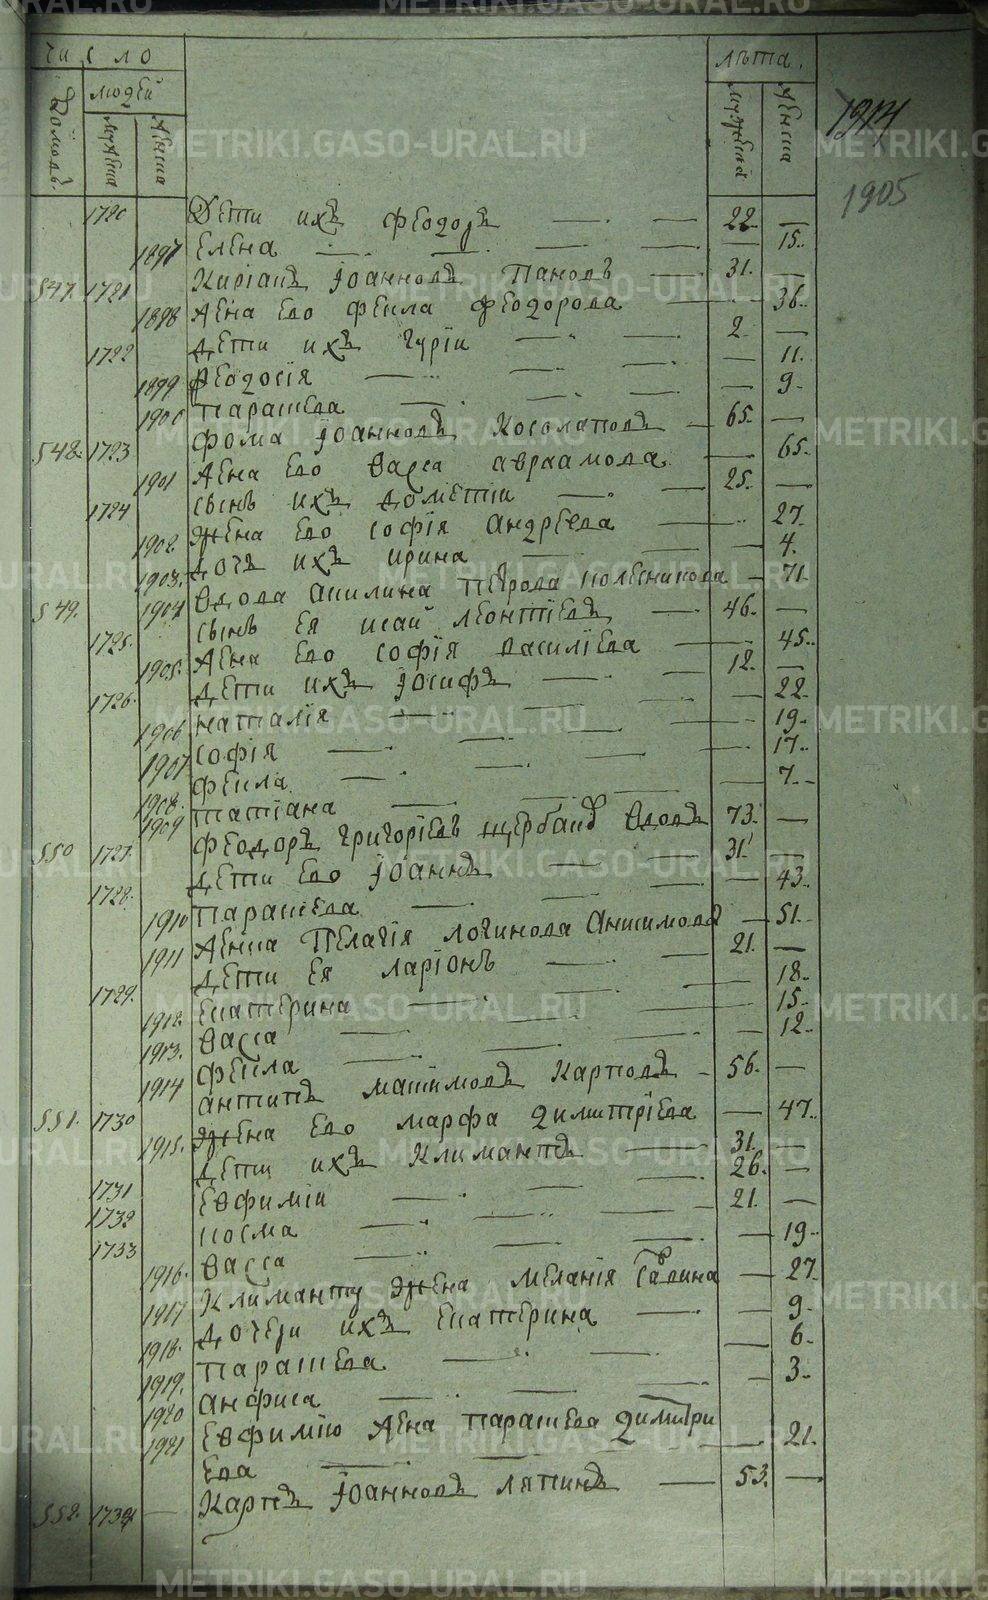 число лѣта.
домовъ. людей мужеска женска мужеска женска
1914
1905
1720 Дети ихъ Феодоръ 22
1897 Елена 15
547. 1721 Киріакъ Іоанновъ Пановъ 31.
1898 Жена его Фекла Феодорова 36
1722 Дети ихъ Гурій 2
1899 Феодосія 11.
1900 Параскева 9
548. 1723 Фома Іоанновъ Косолаповъ 65.
1901 Жена его Васса Авраамова 65.
1724 Сынъ ихъ Дометій 25.
1902 Жена его Софія Андреева 27
1903. Дочь ихъ Ирина 4.
549. 1904 Вдова Акилина Петрова Колесникова 71
1725. Сынъ ея Исай Леонтіевъ 46.
1905. Жена его Софія Василіева 45.
1726. Дети ихъ Іосифъ 12.
1906 Наталія 22.
1907 Софія 19.
1908. Фекла 17.
1909 Татіана 7.
550 1727. Феодоръ Григоріевъ Щербаковъ Вдовъ 73.
1728. Дети его Іоаннъ 31.
1910 Параскева 43.
1911 Женка Пелагія Логинова 51.
1729. Дети ея Ларіонъ 21.
1912. Екатерина 18.
1913. Васса 15.
1914 Фекла 12.
551. 1730 Антипъ Максимовъ Карповъ 56.
1915. Жена его Марфа Димитріева 47.
1731 Дети ихъ Климантъ 31.
1732 Евфимій 26.
1733 Косма 21.
1916. Васса 19
1917 Климанту жена Меланія Саввина 27
1918. Дочери ихъ Екатерина 9
1919. Параскева 6.
1920 Анфиса 3.
1921 Евфимію жена Параскева Димитри
ева 21.
552. 1734 Карпъ Іоанновъ Ляпинъ 53.
METRIKI.GASO-URAL.RU